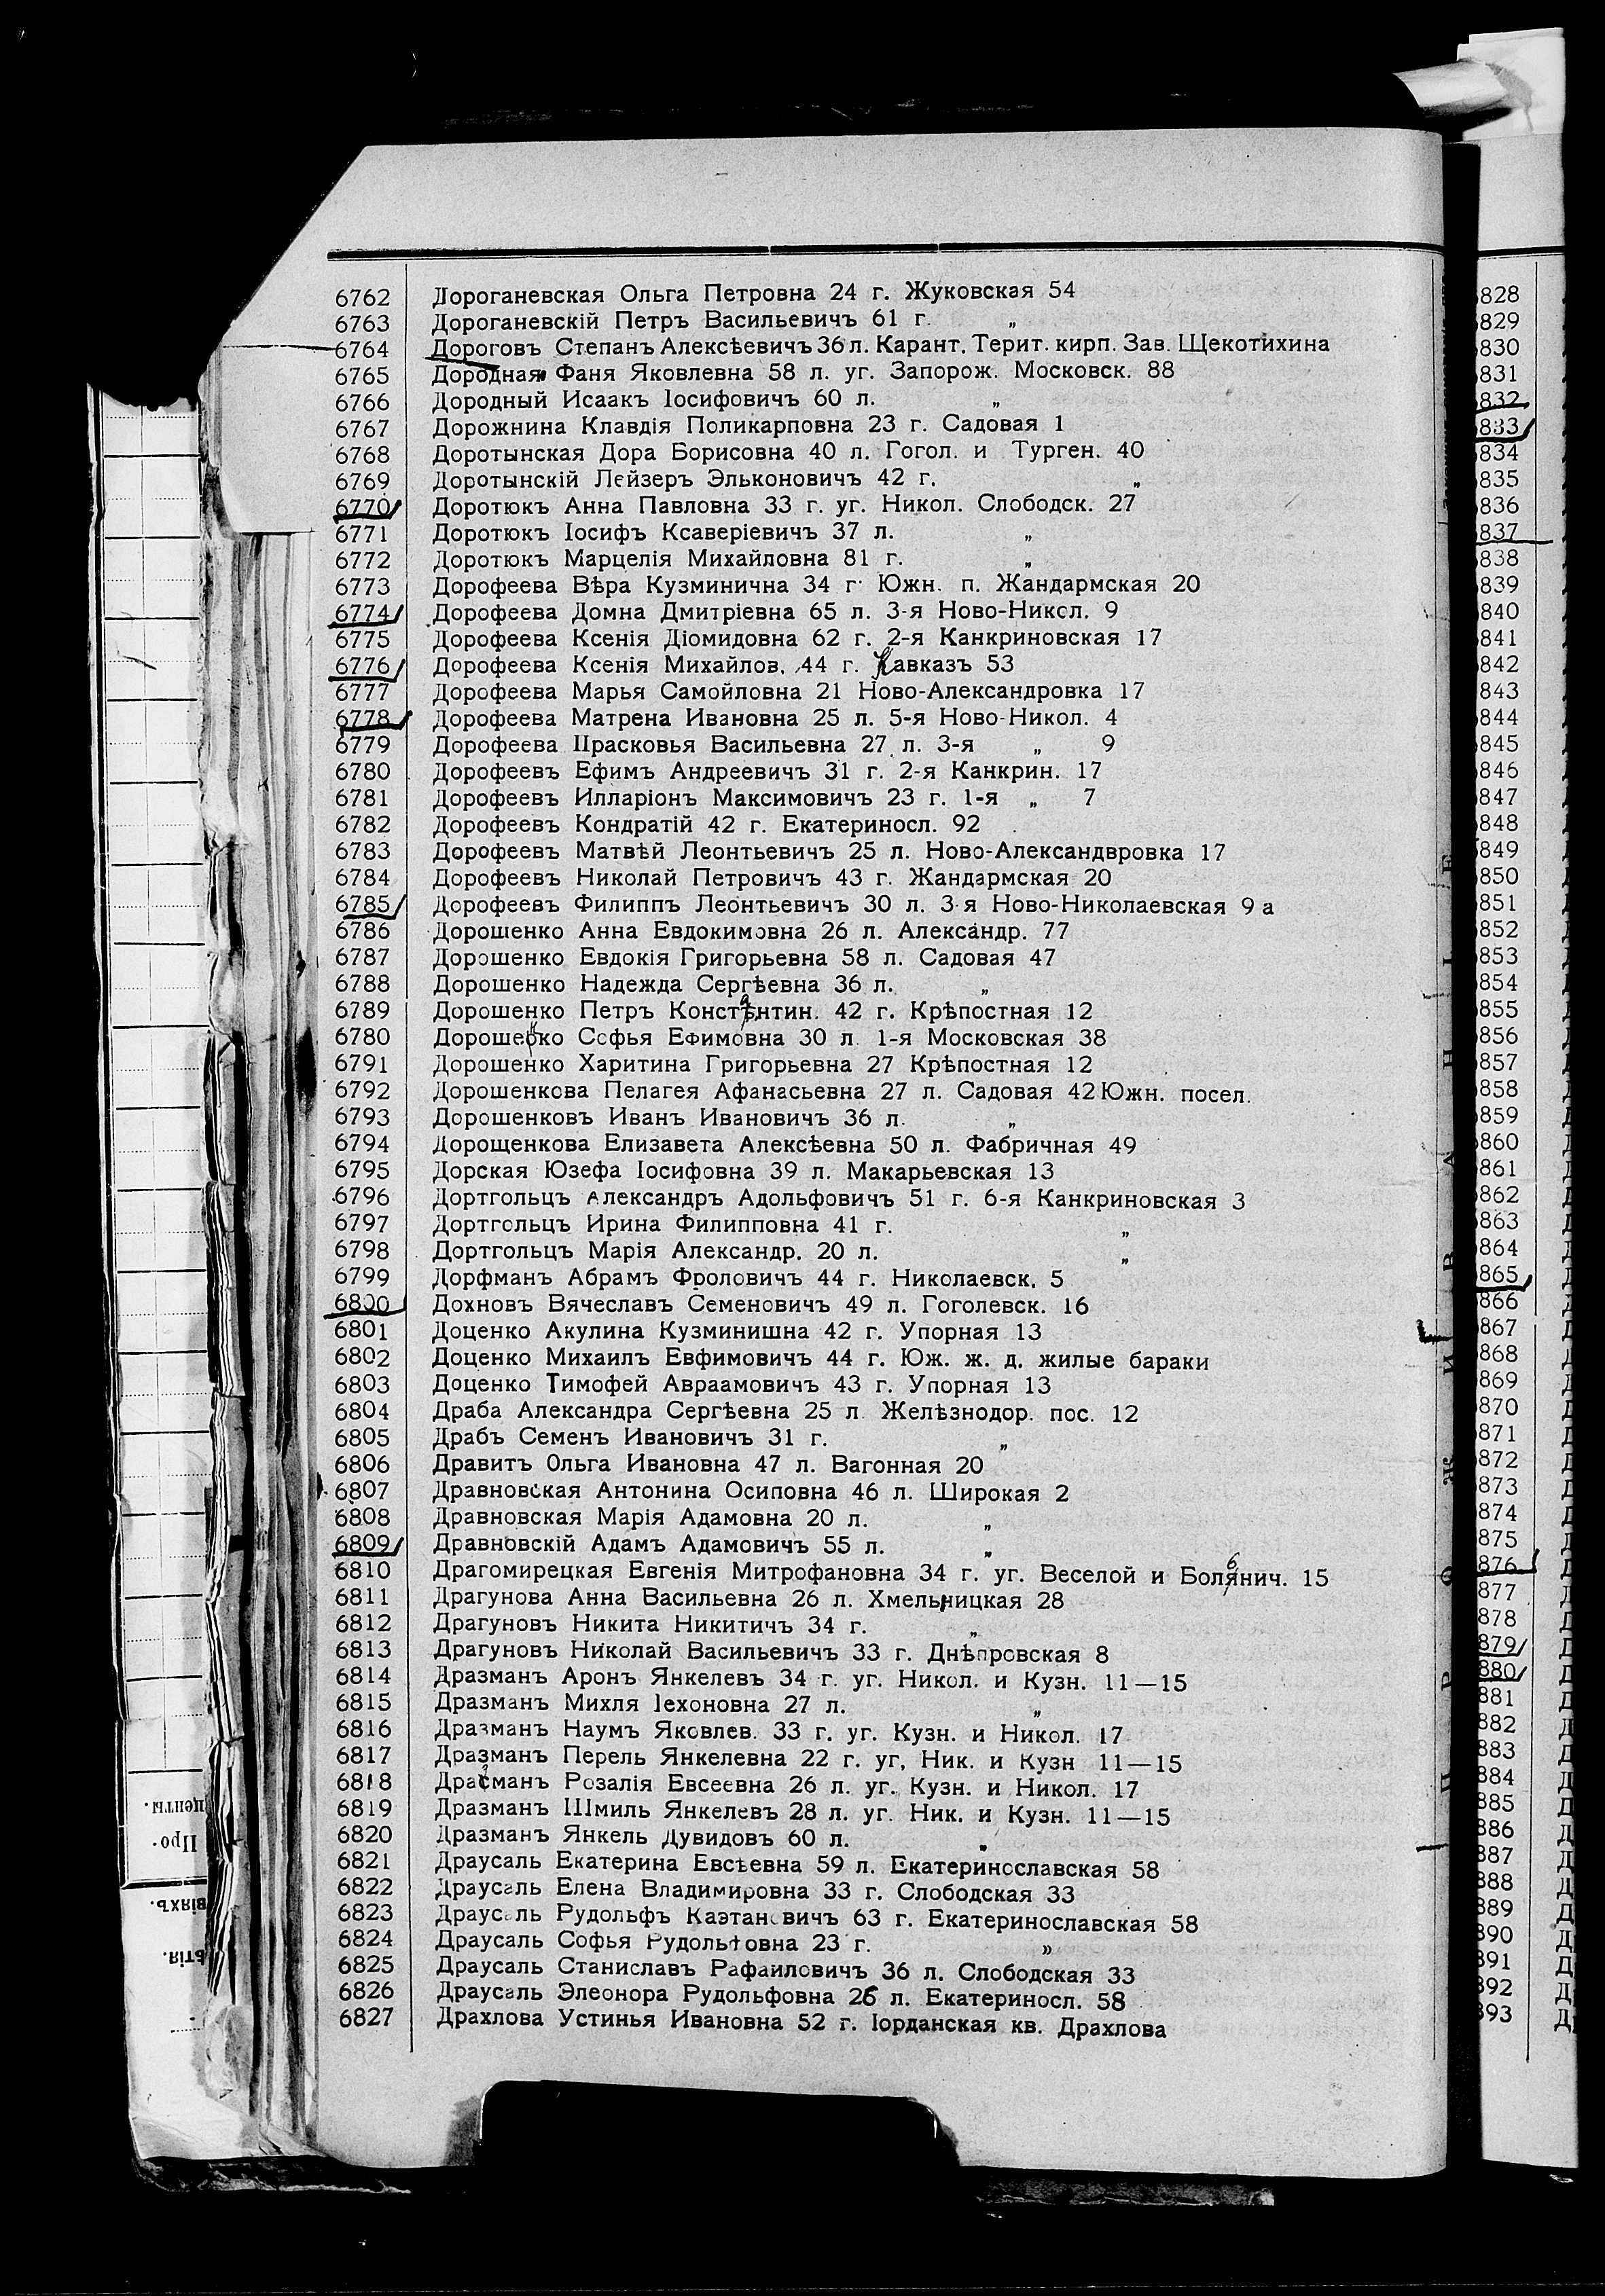 6762 Дороганевская Ольга Петровна 24 г. Жуковская 54
6763 Дороганевскій Петръ Васильевичъ 61 г. „
6764 Дороговъ Степанъ Алексѣевичъ 36 л. Карант. Терит. кирп. Зав. Щекотихина
6765 Дородная Фаня Яковлевна 58 л. уг. Запорож. Московск. 88
6766 Дородный Исаакъ Іосифовичъ 60 л. „
6767 Дорожнина Клавдія Поликарповна 23 г. Садовая 1
6768 Доротынская Дора Борисовна 40 л. Гогол. и Турген. 40
6769 Доротынскій Лейзеръ Эльконовичъ 42 г. „
6770 Доротюкъ Анна Павловна 33 г. уг. Никол. Слободск. 27
6771 Доротюкъ Іосифъ Ксаверіевичъ 37 л. „
6772 Доротюкъ Марцелія Михайловна 81 г. „
6773 Дорофеева Вѣра Кузминична 34 г. Южн. п. Жандармская 20
6774 Дорофеева Домна Дмитріевна 65 л. 3-я Ново-Никол. 9
6775 Дорофеева Ксенія Діомидовна 62 г. 2-я Канкриновская 17
6776 Дорофеева Ксенія Михайлов. 44 г. Кавказъ 53
6777 Дорофеева Марья Самойловна 21 Ново-Александровка 17
6778 Дорофеева Матрена Ивановна 25 л. 5-я Ново-Никол. 4
6779 Дорофеева Прасковья Васильевна 27 л. 3-я „ 9
6780 Дорофеевъ Ефимъ Андреевичъ 31 г. 2-я Канкрин. 17
6781 Дорофеевъ Илларіонъ Максимовичъ 23 г. 1-я „ 7
6782 Дорофеевъ Кондратій 42 г. Екатериносл. 92
6783 Дорофеевъ Матвѣй Леонтьевичъ 25 л. Ново-Александвровка 17
6784 Дорофеевъ Николай Петровичъ 43 г. Жандармская 20
6785 Дорофеевъ Филиппъ Леонтьевичъ 30 л. 3-я Ново-Николаевская 9 а
6786 Дорошенко Анна Евдокимовна 26 л. Александр. 77
6787 Дорошенко Евдокія Григорьевна 58 л. Садовая 47
6788 Дорошенко Надежда Сергѣевна 36 л. „
6789 Дорошенко Петръ Константин. 42 г. Крѣпостная 12
6780 Дорошенко Софья Ефимовна 30 л. 1-я Московская 38
6791 Дорошенко Харитина Григорьевна 27 Крѣпостная 12
6792 Дорошенкова Пелагея Афанасьевна 27 л. Садовая 42 Южн. посел.
6793 Дорошенковъ Иванъ Ивановичъ 36 л. „
6794 Дорощенкова Елизавета Алексѣевна 50 л. Фабричная 49
6795 Дорская Юзефа Іосифовна 39 л. Макарьевская 13
6796 Дортгольцъ Александръ Адольфовичъ 51 г. 6-я Канкриновская 3
6797 Дортгольцъ Ирина Филипповна 41 г. „
6798 Дортгольцъ Марія Александр. 20 л. „
6799 Дорфманъ Абрамъ Фроловичъ 44 г. Николаевск. 5
6800 Дохновъ Вячеславъ Семеновичъ 49 л. Гоголевск. 16
6801 Доценко Акулина Кузминишна 42 г. Упорная 13
6802 Доценко Михаилъ Евфимовичъ 44 г. Юж. ж. д. жилые бараки
6803 Доценко Тимофей Авраамовичъ 43 г. Упорная 13
6804 Драба Александра Сергѣевна 25 л. Желѣзнодор. пос. 12
6805 Драбъ Семенъ Ивановичъ 31 г. „
6806 Дравитъ Ольга Ивановна 47 л. Вагонная 20
6807 Дравновская Антонина Осиповна 46 л. Широкая 2
6808 Дравновская Марія Адамовна 20 л. „
6809 Дравновскій Адамъ Адамовичъ 55 л. „
6810 Драгомирецкая Евгенія Митрофановна 34 г. уг. Веселой и Болбнич. 15
6811 Драгунова Анна Васильевна 26 л. Хмельницкая 28
6812 Драгуновъ Никита Никитичъ 34 г. „
6813 Драгуновъ Николай Васильевичъ 33 г. Днѣпровская 8
6814 Дразманъ Аронъ Янкелевъ 34 г. уг. Никол. и Кузн. 11—15
6815 Дразманъ Михля Іехоновна 27 л. „
6816 Дразманъ Наумъ Яковлев. 33 г. уг. Кузн. и Никол. 17
6817 Дразманъ Перель Янкелевна 22 г. уг. Ник. и Кузн 11—15
6818 Дразманъ Розалія Евсеевна 26 л. уг. Кузн. и Никол. 17
6819 Дразманъ Шмиль Янкелевъ 28 л. уг. Ник. и Кузн. 11—15
6820 Дразманъ Янкель Дувидовъ 60 л. „
6821 Драусаль Екатерина Евсѣевна 59 л. Екатеринославская 58
6822 Драусаль Елена Владимировна 33 г. Слободская 33
6823 Драусаль Рудольфъ Каэтановичъ 63 г. Екатеринославская 58
6824 Драусаль Софья Рудольфовна 23 г. „
6825 Драусаль Станиславъ Рафаиловичъ 36 л. Слободская 33
6826 Драусаль Элеонора Рудольфовна 26 л. Екатериносл. 58
6827 Драхлова Устинья Ивановна 52 г. Іорданская кв. Драхлова
828
829
830
831
832
833
834
835
836
837
838
839
840
841
842
843
844
845
846
847
848
849
850
851
852
853
854
855
856
857
858
859
860
861
862
863
864
865
866
867
868
869
870
871
872
873
874
875
876
877
878
879
880
881
882
883
884
885
886
887
888
889
890
891
892
893
Про-
центы.